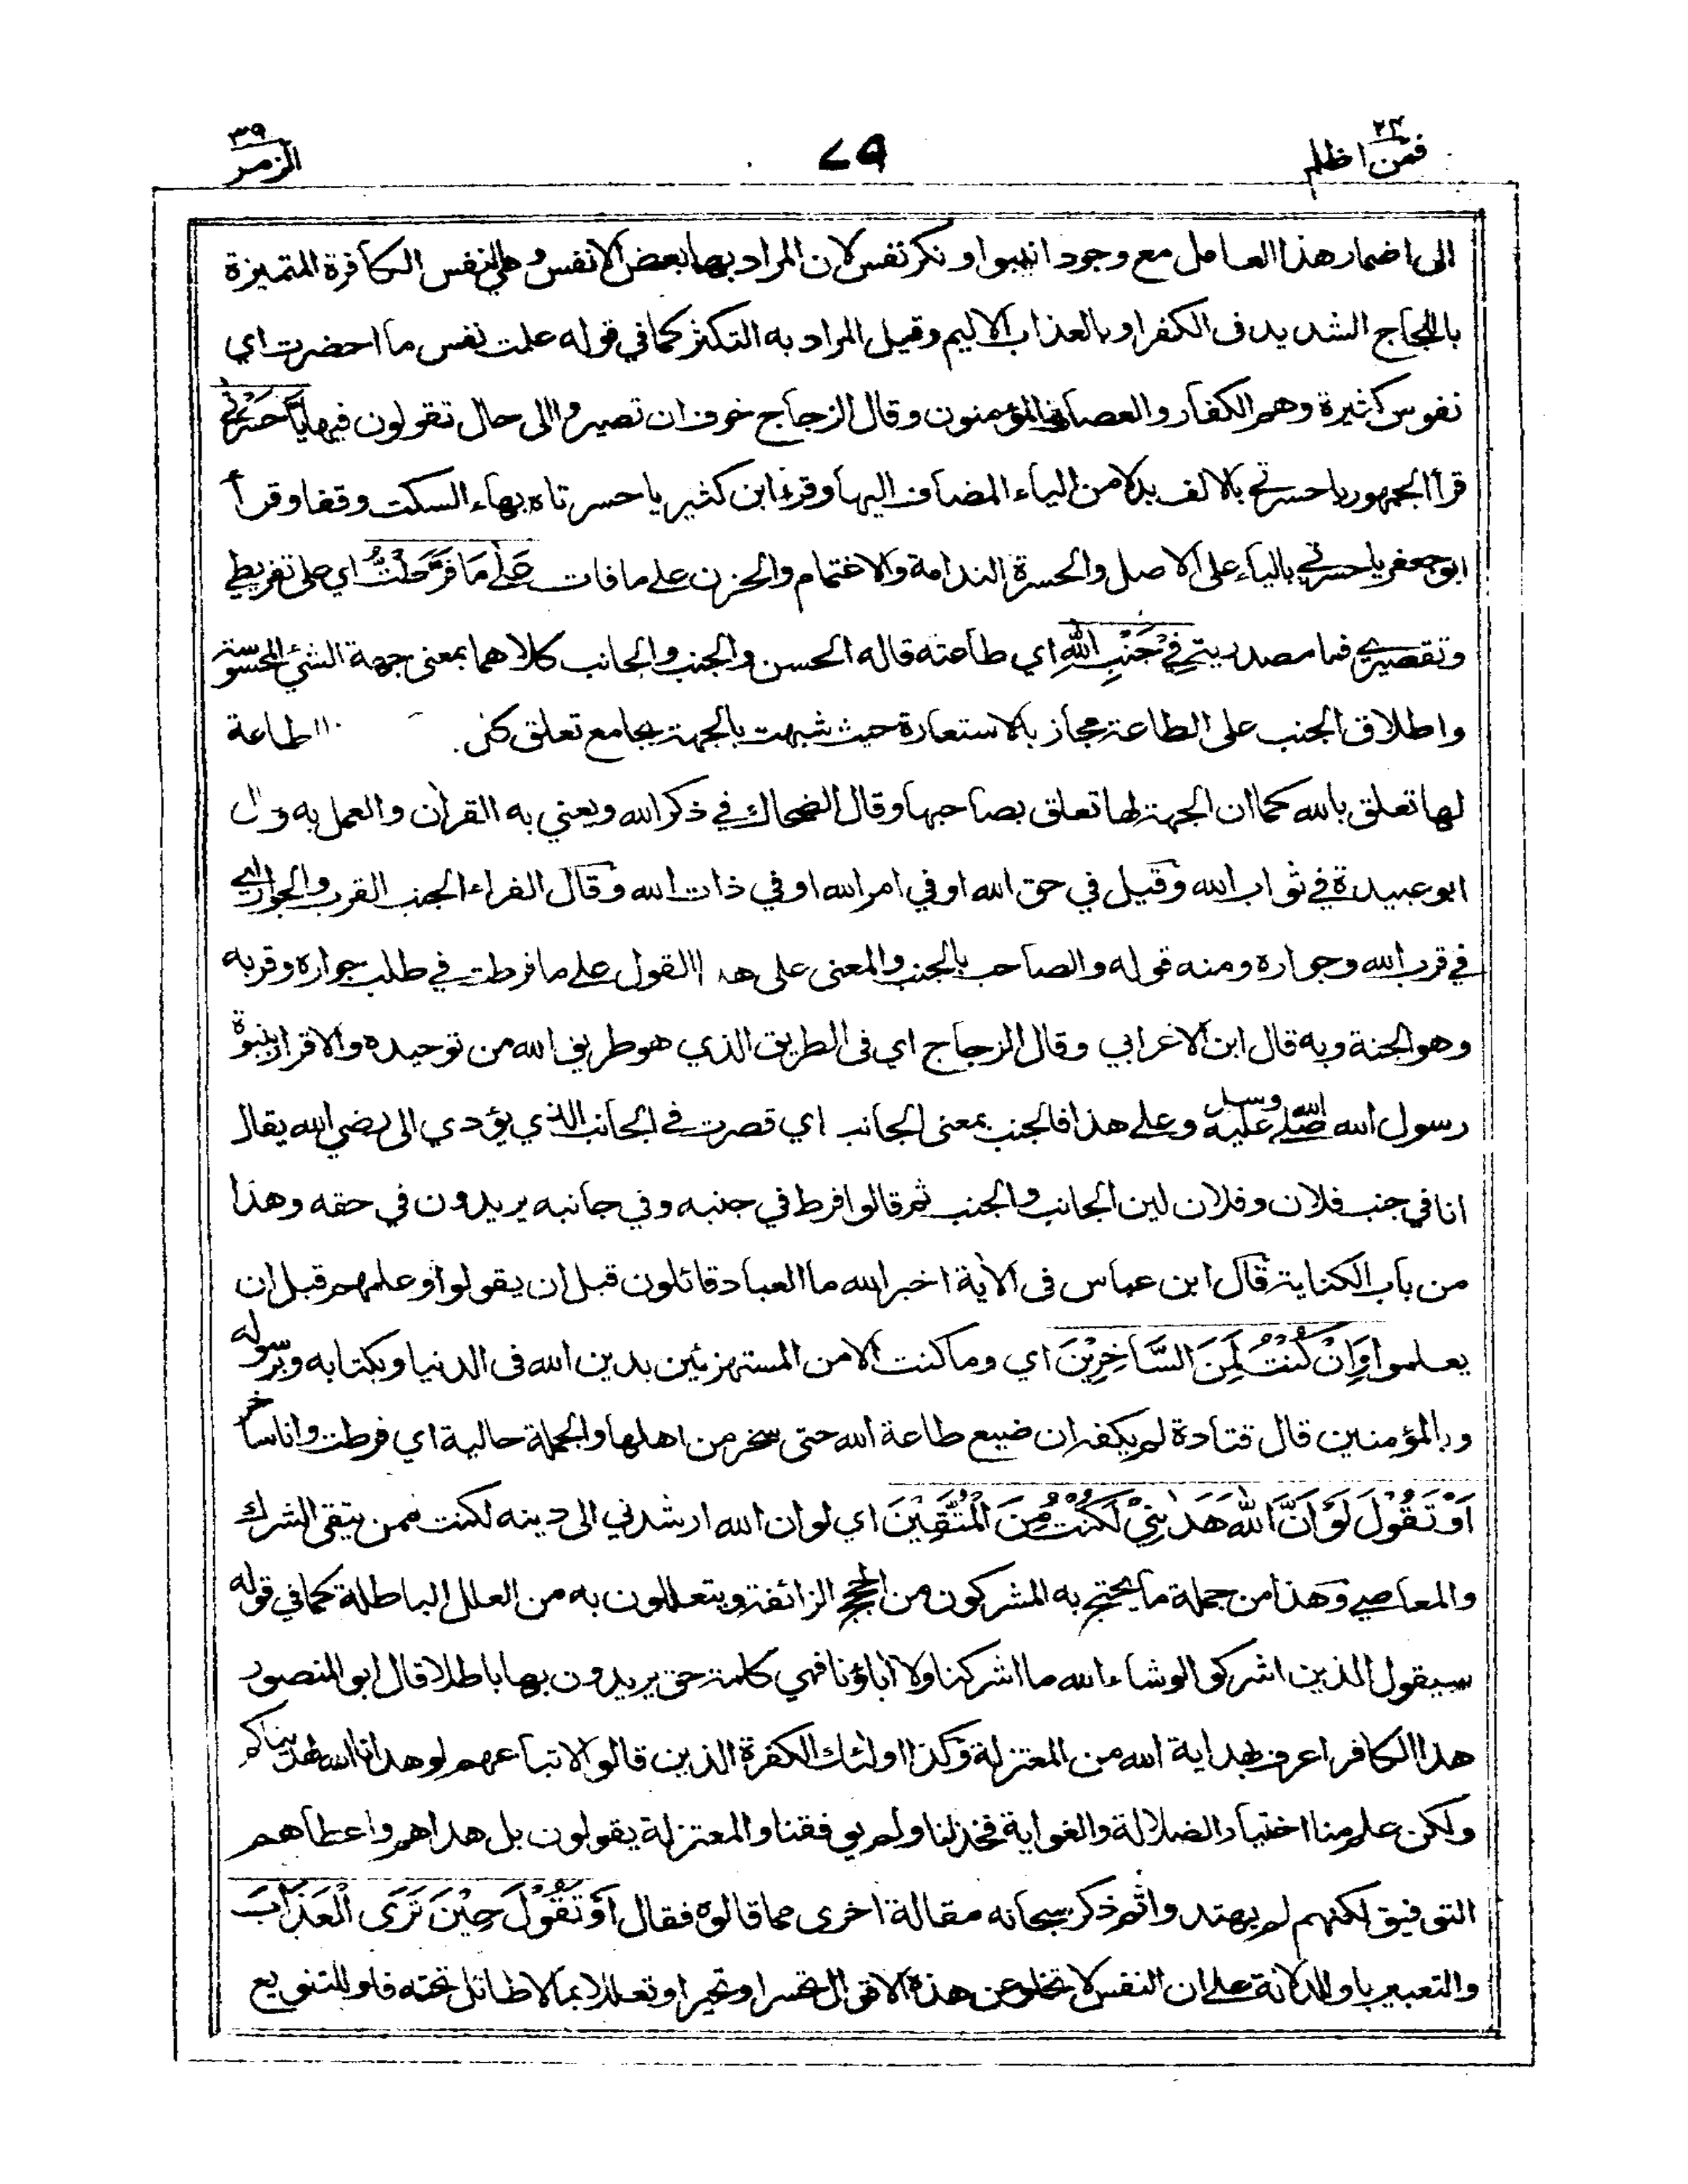 فمن اظلم ٢٤
٧٩
الزمر ٣٩
الى اضمار هذا العامل مع وجود انيبوا ونكر نفس لان المراد بها بعض الانفس وهي النفس الكافرة المتميزة
باللجاج الشديد في الكفر او بالعذاب الاليم وقيل المراد به التكثر كما في قوله علمت نفس ما احضرت اي
نفوس كثيرة وهم الكفار والعصاة المؤمنون وقال الزجاج خوف ان تصيروا الى حال تقولون فيها يَا حَسْرَتٰى
قرأ الجمهور يا حسرتى بالالف بدلا من الياء المضاف اليها وقرء ابن كثير يا حسرتاه بهاء السكت وقفا وقرأ
ابو جعفر يا حسرتي بالياء على الاصل والحسرة الندامة والاغتمام والحزن على ما فات عَلٰى مَا فَرَّطْتُّ اي على تفريطي
وتقصيري فما مصدرية فِيْ جَنْبِ اللّٰهِ اي طاعته قاله الحسن والجنب والجانب كلاهما بمعنى جهة الشئ المحسوسة
واطلاق الجنب على الطاعة مجاز بالاستعارة حيث شبهت بالجهة بجامع تعلق كل طاعة
لها تعلق بالله كما ان الجهة لها تعلق بصاحبها وقال الضحاك في ذكر الله ويعني به القراٰن والعمل به وقال
ابو عبيدة في ثواب الله وقيل في حق الله او في امر الله او في ذات الله وقال الفراء الجنب القرب والجوار اي
في قرب الله وجواره ومنه قوله والصاحب بالجنب والمعنى على هذا القول على ما فرطت في طلب جواره وقربه
وهو الجنة وبه قال ابن الاعرابي وقال الزجاج اي فى الطريق الذي هو طريق الله من توحيده والاقرار بنبوة
رسول الله صلى الله عليه وسلم وعلى هذا فالجنب بمعنى الجانب اي قصرت في الجانب الذي يؤدي الى رضى الله يقال
انا في جنب فلان وفلان لين الجانب والجنب ثم قالوا فرط في جنبه وفي جانبه يريدون في حقه وهذا
من باب الكناية قال ابن عباس فى الاٰية اخبر الله ما العباد قائلون قبل ان يقولوا وعلمهم قبل ان
يعلموا وَاِنْ كُنْتُ لَمِنَ السَّاخِرِيْنَ اي وما كنت الا من المستهزئين بدين الله فى الدنيا وبكتابه وبرسوله
وبالمؤمنين قال قتادة لم يكفه ان ضيع طاعة الله حتى سخر من اهلها والجملة حالية اي فرطت وانا ساخر
اَوْ تَقُوْلَ لَوْ اَنَّ اللّٰهَ هَدٰىنِيْ لَكُنْتُ مِنَ الْمُتَّقِيْنَ اي لو ان الله ارشدني الى دينه لكنت ممن يتقى الشرك
والمعاصي وهذا من جملة ما يحتج به المشركون من الحجج الزائفة ويتعللون به من العلل الباطلة كما في قوله
سيقول الذين اشركوا لو شاء الله ما اشركنا ولا اٰباؤنا فهي كلمة حق يريدون بها باطلا قال ابو المنصور
هذا الكافر اعرف بهداية الله من المعتزلة وكذا اولئك الكفرة الذين قالوا لاتباعهم لو هدانا الله لهديناكم
ولكن علم منا اختيار الضلالة والغواية فخذلنا ولم يوفقنا والمعتزلة يقولون بل هداهم واعطاهم
التوفيق لكنهم لم يهتدوا ثم ذكر سبحانه مقالة اخرى مما قالوه فقال اَوْ تَقُوْلَ حِيْنَ تَرَى الْعَذَابَ
والتعبير باو للدلالة على ان النفس لا تخلو عن هذه الاقوال تحسرا وتحيرا وتعللا بما لا طائل تحته فاو للتنويع